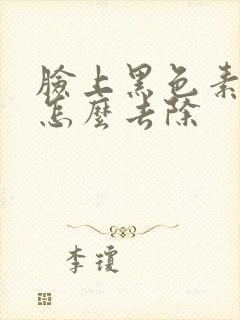 臉上黑色素
怎麼去除
李瓊